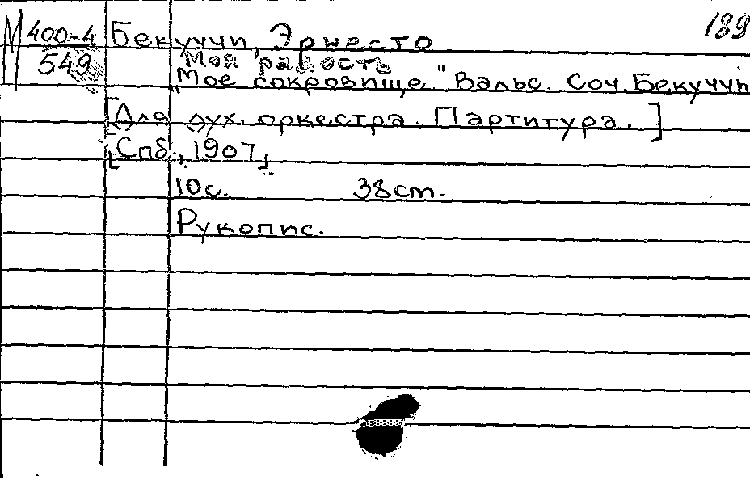 М 400-4 Бекуччи, Эрнесто 189
549 Моя радость
"Мое сокровище." Вальс. Соч. Бекуччи
[Для дух. оркестра. Партитура.]
[Спб., 1907]
10с. 38ст.
Рукопис.